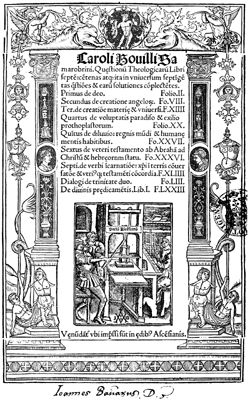 Caroli Bouilli Sa
marobrini. Quęstionū Theologicarū Libri
septē: cētenas atq; ita in vniuersum septīgē
tas q̄stiões & earū solutiones cōplectētes.
Primus de deo. Folio.II.
Secundus de creatione angeloꝝ. Fo.VIII.
Ter.de creatiōe materię & vniuersi. F.XIIII
Quartus de voluptatis paradiso & exilio
prothoplastorum. Folio.XX.
Qūtus de diluuio: regnis mūdi & humanę
mentis habitibus. Fo.XXVII.
Sextus de veteri testamento ab Abrahā ad
Christū & hebręorum statu. Fo.XXXVI.
Dialogi de trinitate duo. Fo.LIII.
De diuinis prędicamētis. Lib.I. F.LXXIII
Vęnūdāt vbi imp̄ssi sūt in ędib⁹ Ascēsianis.
Ioannes Bavarus D.